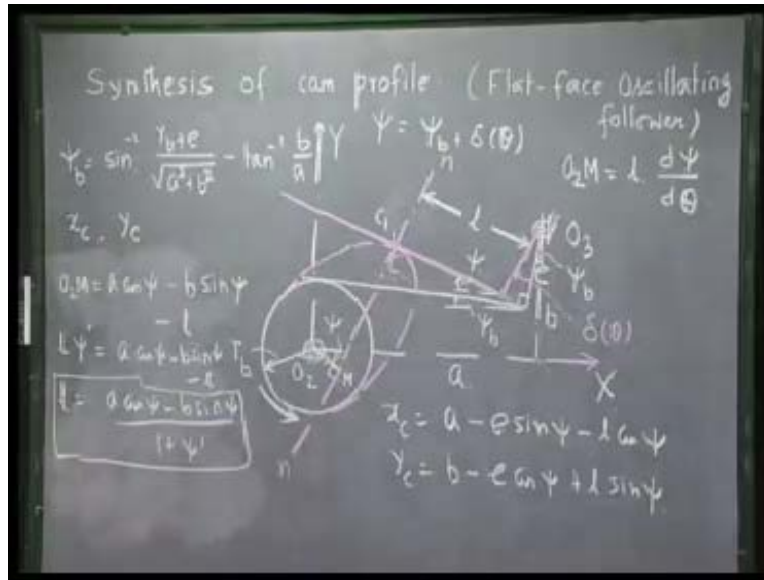 Synthesis of cam profile (Flat-face Oscillating
follower)
Ψ_b = sin⁻¹ (r_b+e)/√(a²+b²) - tan⁻¹ b/a
Y
Ψ = Ψ_b + δ(θ)
O₂M = l dΨ/dθ
x_c, y_c
O₂M = a cos Ψ - b sin Ψ
- l
lΨ' = a cos Ψ - b sin Ψ
- l
l = (a cos Ψ - b sin Ψ)/(1+Ψ')
n
C
l
O₃
Ψ
Ψ_b
Ψ_b
b
δ(θ)
r_b
Ψ
O₂
M
a
X
n
x_c = a - e sin Ψ - l cos Ψ
y_c = b - e cos Ψ + l sin Ψ